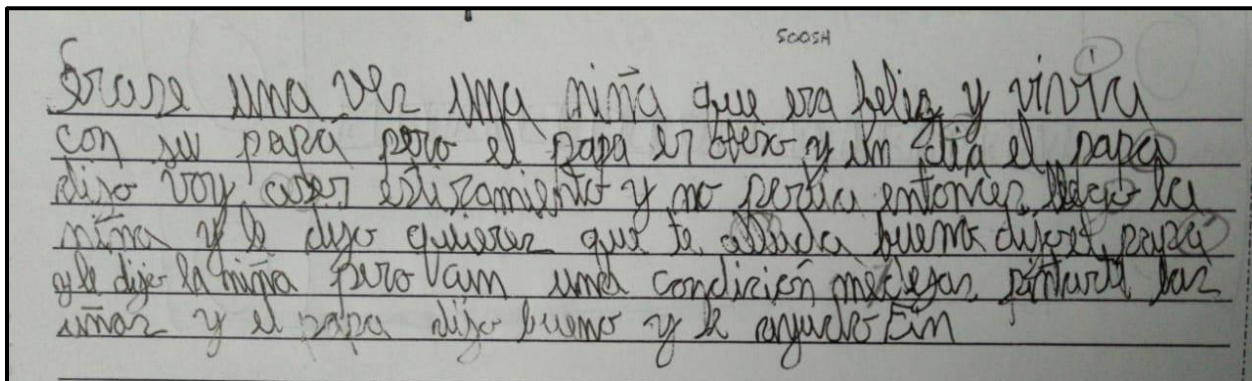 SOOSH
Erase una vez una niña que era feliz y vivia
con su papá pero el papa er obeso y un dia el papa
dijo voy aser estiramiento y no podia entonces llego la
niña y le dijo quieres que te alluda bueno dijo el papá
y le dijo la niña pero con una condición me dejas pintarte las
uñas y el papa dijo bueno y le ayudo Fin